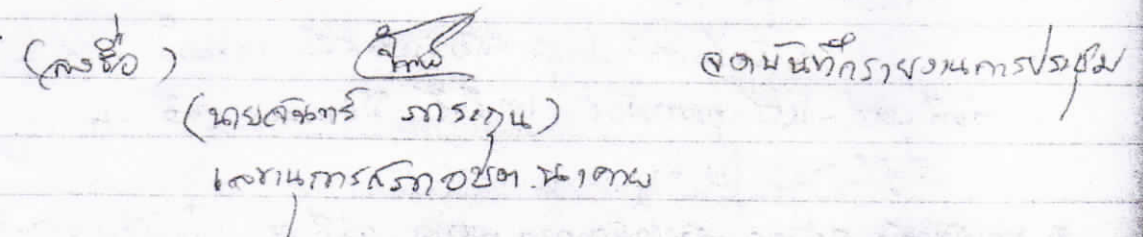 (ลงชื่อ) จันทร์ จดบันทึกรายงานการประชุม
(นายจันทร์ ภาระกุน)
เลขานุการสภา อบต.นาคาย